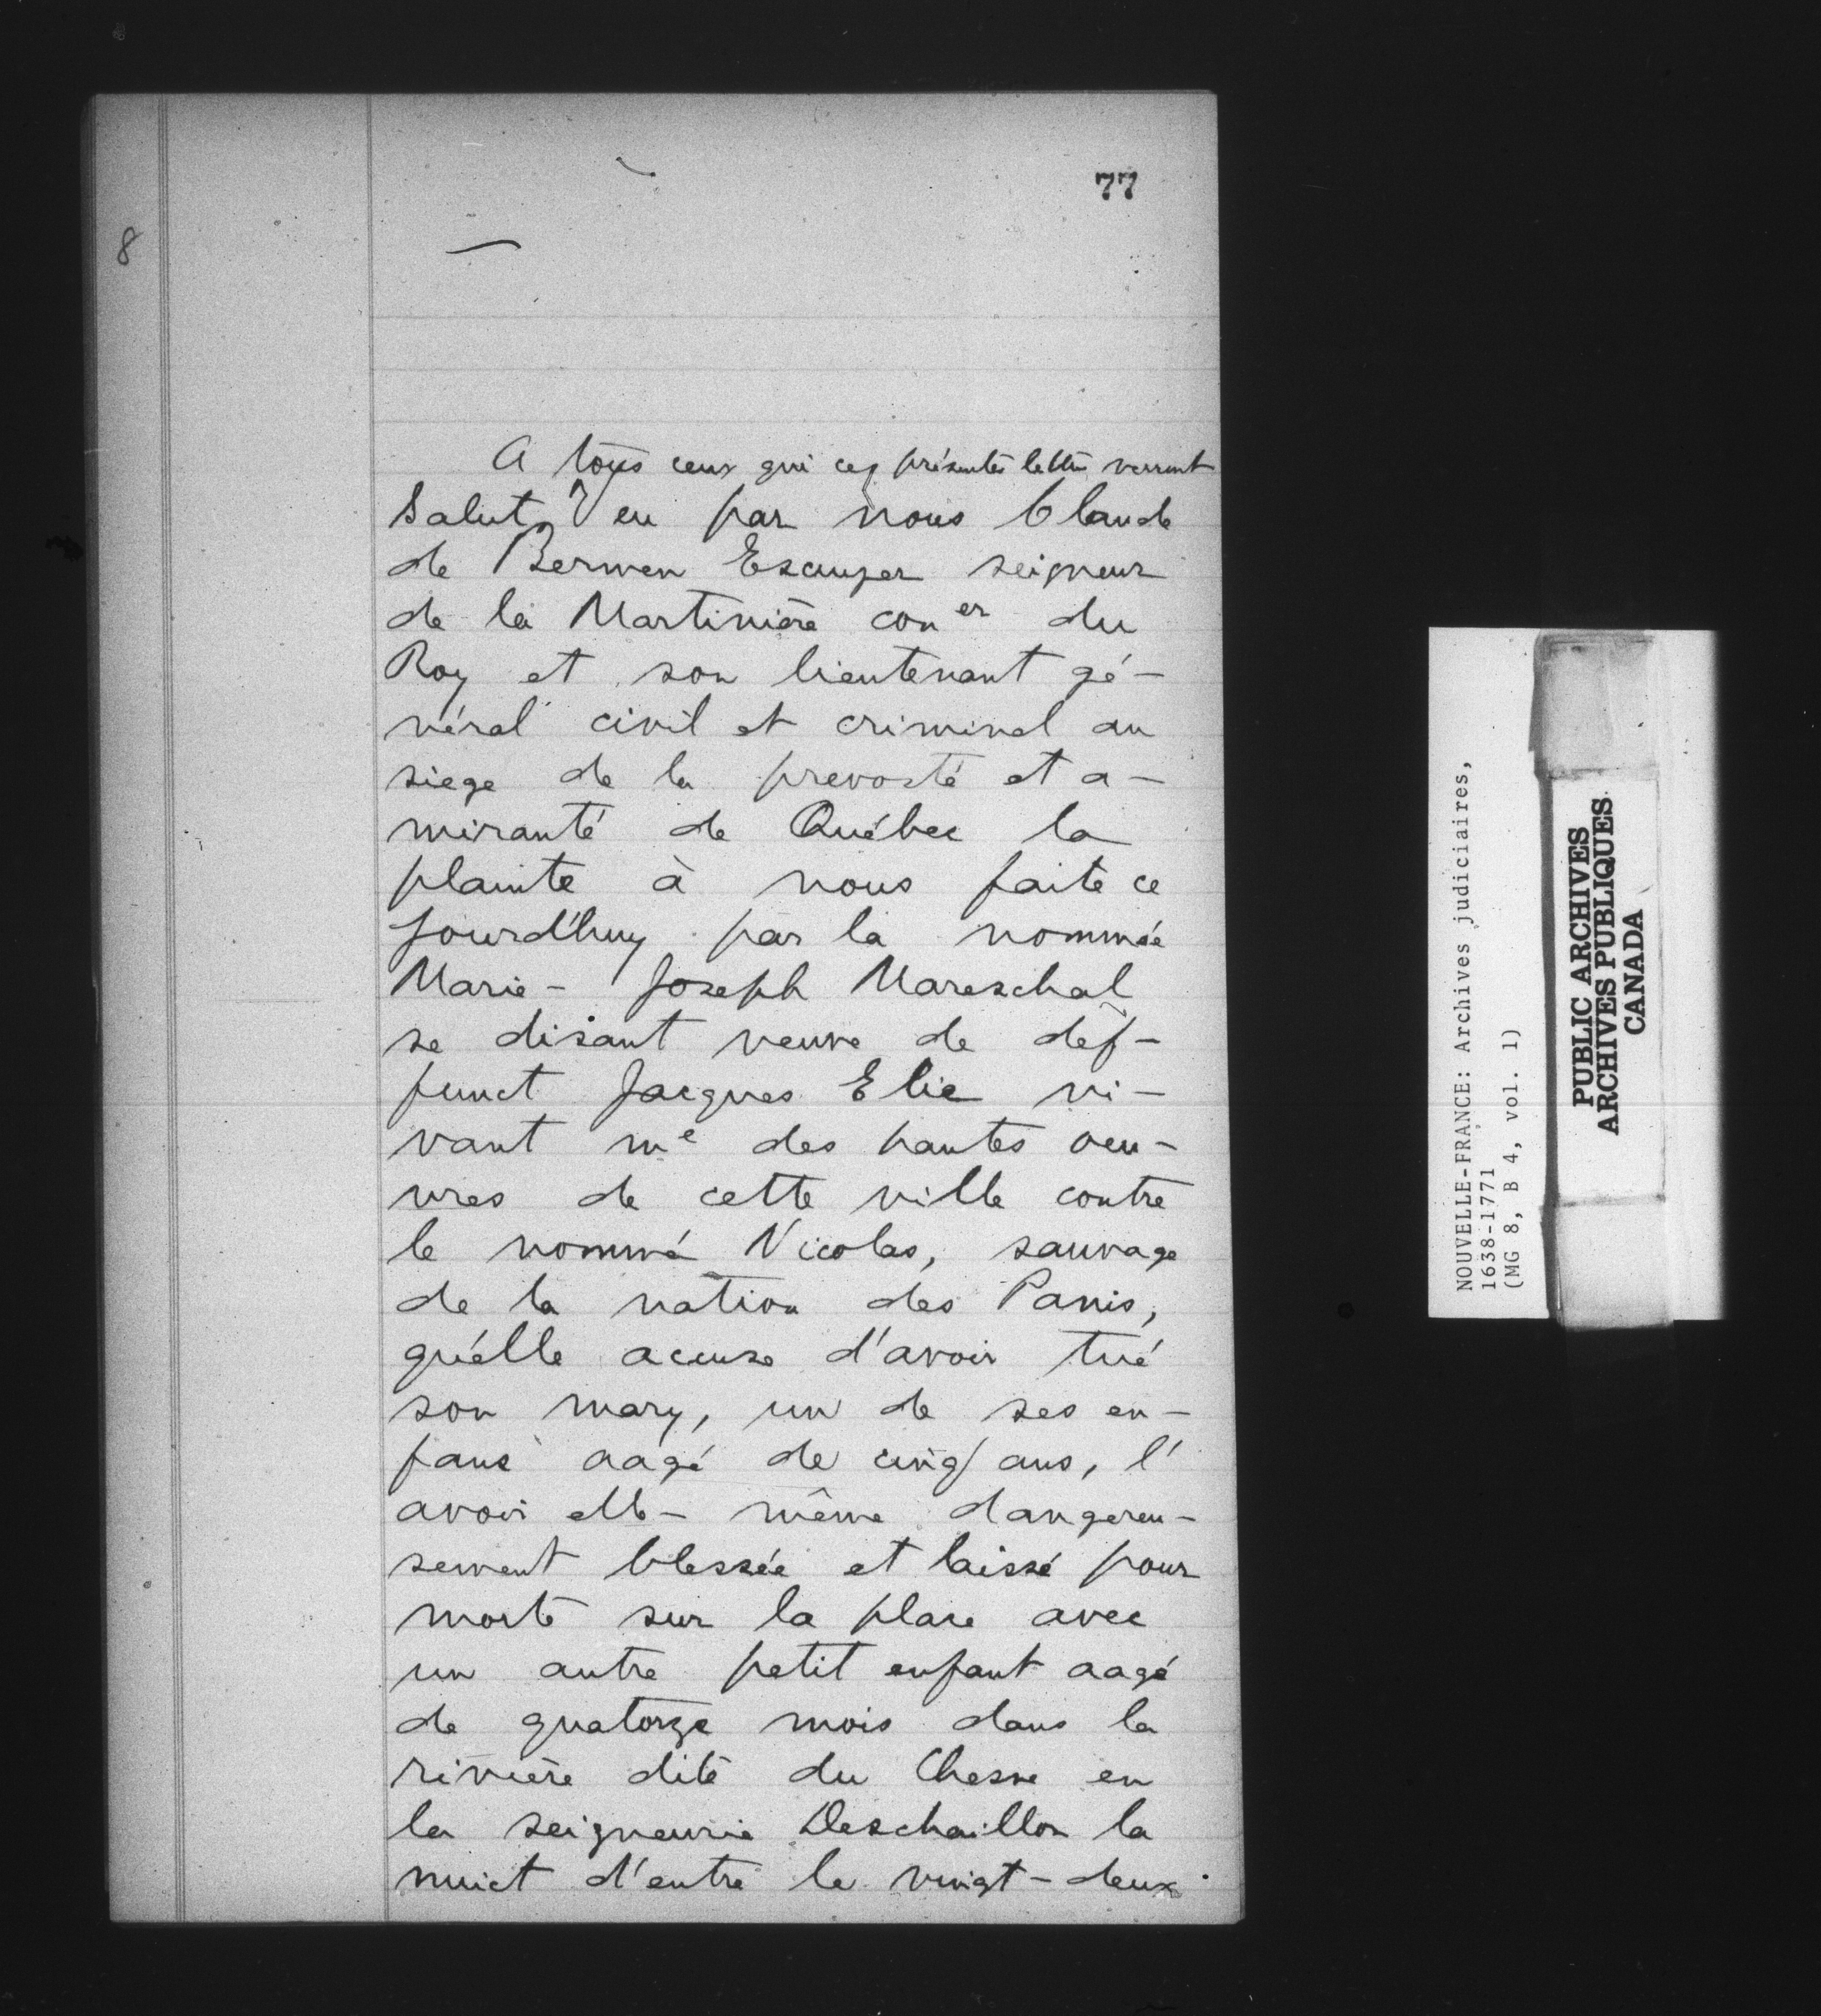 77
8
A tous ceux qui ces présentes lettres verront
Salut, Veu par nous Claude
de Bermen Escuyer seigneur
de la Martinière con er du
Roy et son lieutenant gé-
néral civil et criminel au
siege de la prevosté et a-
mirauté de Québec la
plainte à nous faite ce
jourd'huy par la nommée
Marie- Joseph Mareschal
se disant veuve de def-
funct Jacques Elie vi-
vant me des hautes oeu-
vres de cette ville contre
le nommé Nicolas, sauvage
de la nation des Panis,
qu'elle accuse d'avoir tué
son mary, un de ses en-
fans aagé de cinq ans, l'
avoir elle- même dangereu-
sement blessée et laissé pour
morte sur la place avec
un autre petit enfant aagé
de quatorze mois dans la
rivière dite du Chesne en
la seigneurie Deschaillon la
nuict d'entre le vingt-deux
NOUVELLE-FRANCE: Archives judiciaires,
1638-1771
(MG 8, B 4, vol. 1)
PUBLIC ARCHIVES
ARCHIVES PUBLIQUES
CANADA